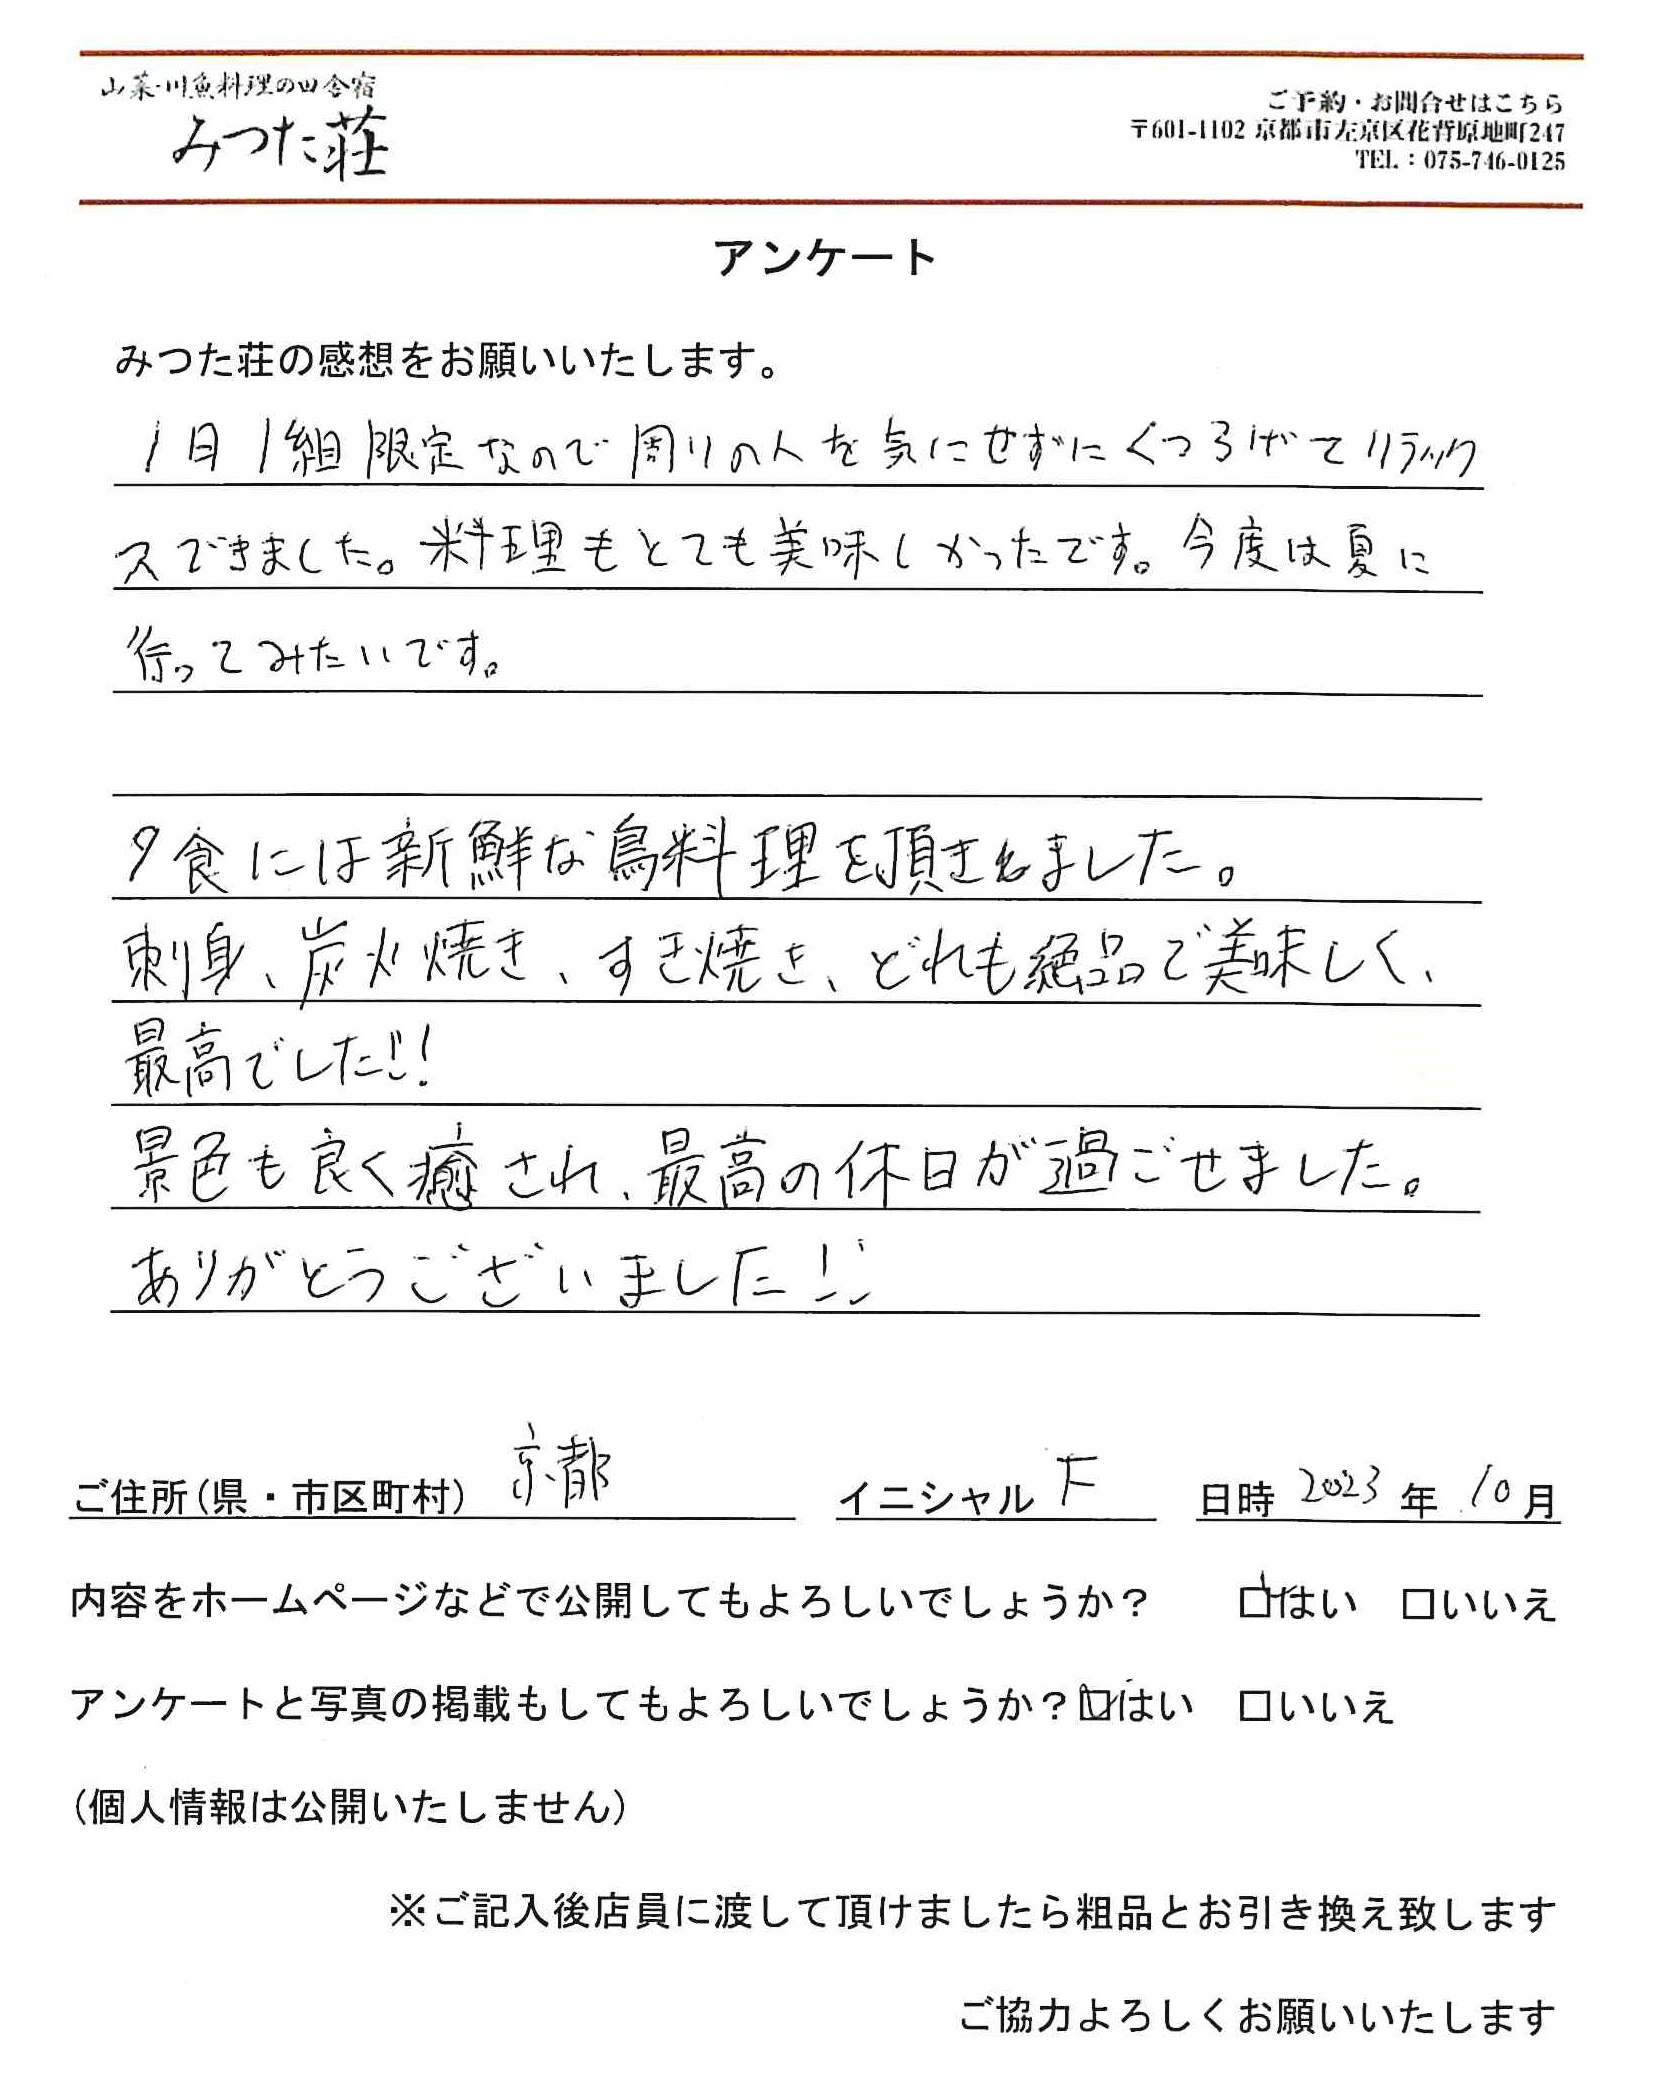 山菜・川魚料理の田舎宿
みつた荘
ご予約・お問合せはこちら
〒601-1102 京都市左京区花背原地町247
TEL：075-746-0125
アンケート
みつた荘の感想をお願いいたします。
1日1組限定なので周りの人を気にせずにくつろげてリラック
スできました。料理もとても美味しかったです。今度は夏に
行ってみたいです。
夕食には新鮮な鳥料理を頂きました。
刺身、炭火焼き、すき焼き、どれも絶品で美味しく、
最高でした!!
景色も良く癒され、最高の休日が過ごせました。
ありがとうございました!!
ご住所(県・市区町村) 京都 イニシャル F 日時 2023 年 10 月
内容をホームページなどで公開してもよろしいでしょうか？ ☑はい □いいえ
アンケートと写真の掲載もしてもよろしいでしょうか？☑はい □いいえ
(個人情報は公開いたしません)
※ご記入後店員に渡して頂けましたら粗品とお引き換え致します
ご協力よろしくお願いいたします